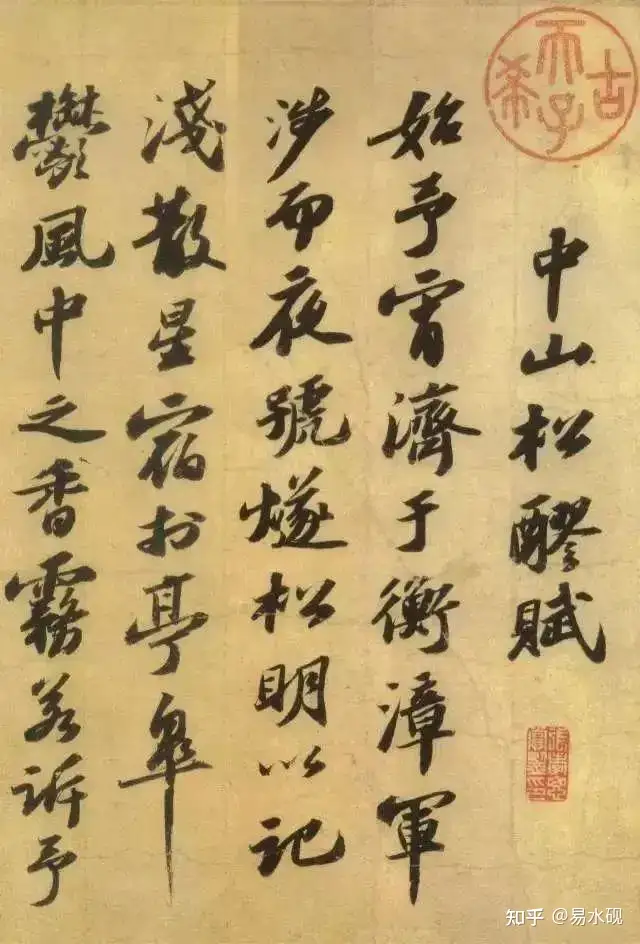 古希天子
中山松醪賦
始予宵濟于衡漳軍
涉而夜號燧松明以記
淺散星宿於亭皐
鬱風中之香霧若訴予
知乎 @易水砚